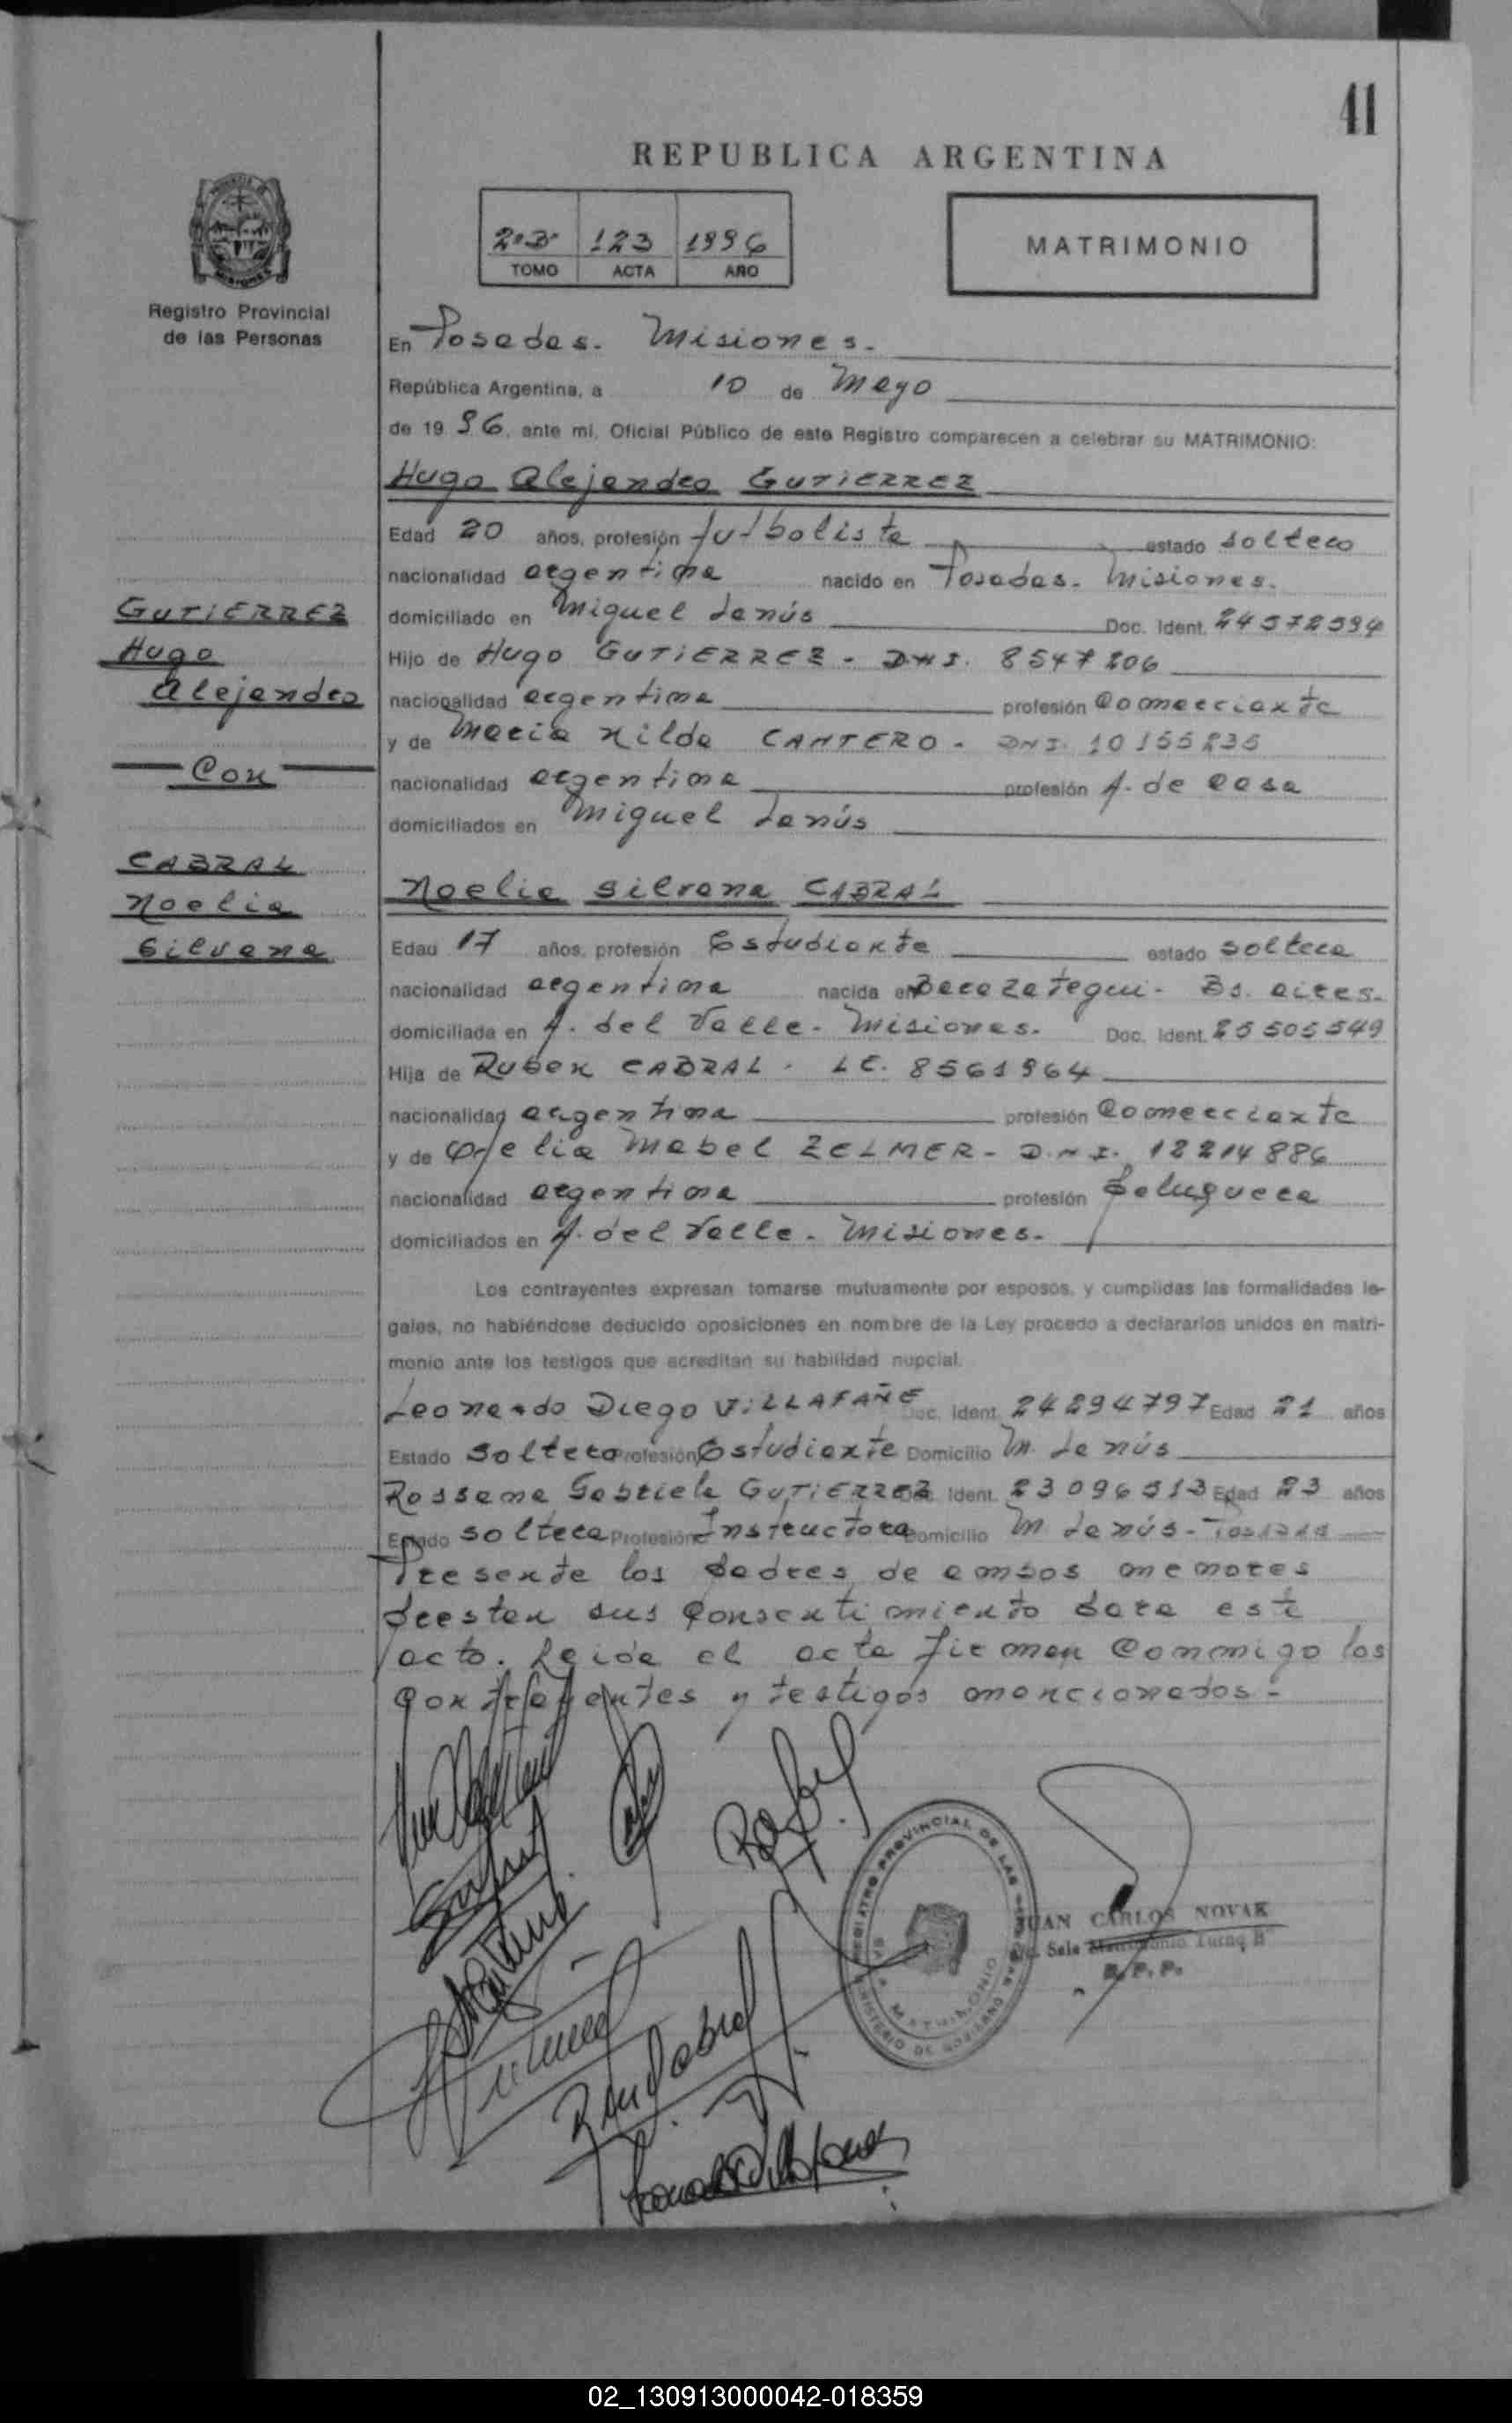 41
REPUBLICA ARGENTINA
123 1996
TOMO ACTA AÑO
MATRIMONIO
Registro Provincial
de las Personas
En Posadas. Misiones.
República Argentina, a 10 de Mayo
de 1996, ante mi, Oficial Público de este Registro comparecen a celebrar su MATRIMONIO:
Hugo Alejandro GUTIERREZ
Edad 20 años, profesión futbolista estado soltero
nacionalidad argentina nacido en Posadas. Misiones.
domiciliado en Miguel Lanús Doc. Ident.
Hijo de Hugo GUTIERREZ - DNI. 8547206
nacionalidad argentina profesión Comerciante
y de Maria Nilda CANTERO - DNI. 10155235
nacionalidad argentina profesión A. de casa
domiciliados en Miguel Lanús
GUTIERREZ
Hugo
Alejandro
Con
CABRAL
Noelia
Silvana
Noelia Silvana CABRAL
Edad 17 años, profesión Estudiante estado soltera
nacionalidad argentina nacida en Berazategui - Bs. aires.
domiciliada en A. del Valle - Misiones. Doc. Ident.
Hija de Ruben CABRAL - LE. 8561964
nacionalidad argentina profesión Comerciante
y de Ofelia Mabel ZELMER - D.N.I. 12214886
nacionalidad argentina profesión peluquera
domiciliados en A. del Valle - Misiones.
Los contrayentes expresan tomarse mutuamente por esposos, y cumplidas las formalidades le-
gales, no habiéndose deducido oposiciones en nombre de la Ley procedo a declararlos unidos en matri-
monio ante los testigos que acreditan su habilidad nupcial.
Leonardo Diego VILLAFAÑE Doc. Ident. 24294797 Edad 21 años
Estado soltero Profesión Estudiante Domicilio M. Lanús
Rossana Gabriela GUTIERREZ Doc. Ident. Edad 23 años
Estado soltera Profesión Instructora Domicilio M. Lanús - Posadas
Presente los padres de ambos menores
prestan sus consentimiento para este
acto. Leida el acta firman conmigo los
contrayentes y testigos mencionados -
REGISTRO PROVINCIAL DE LAS PERSONAS
SALA MATRIMONIO
MINISTERIO DE GOBIERNO
JUAN CARLOS NOVAK
Sala Matrimonio Turno B
R. P. P.
02_130913000042-018359